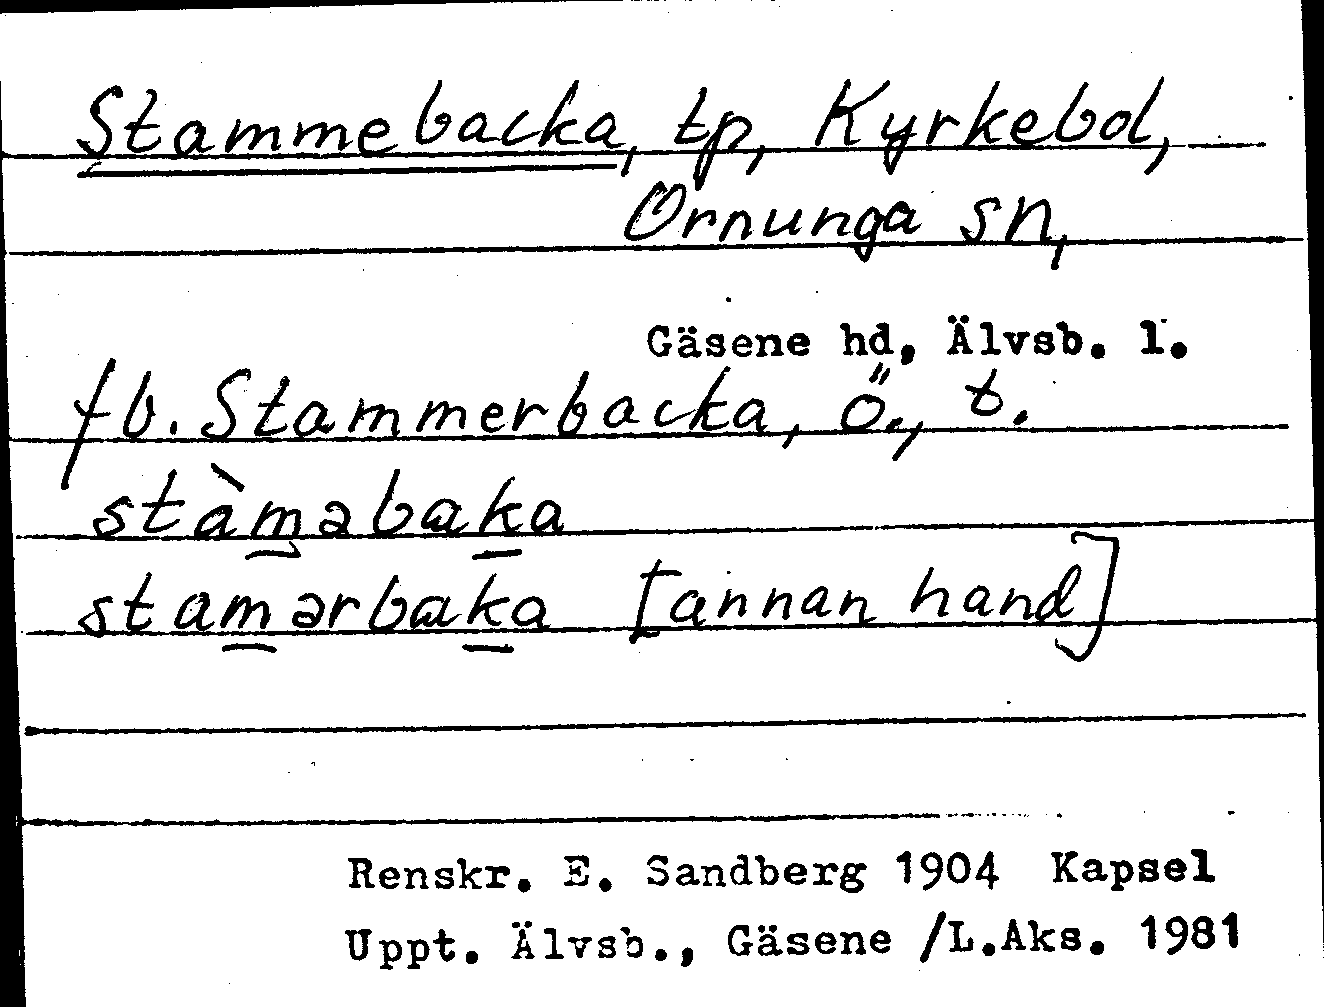 Stammebacka, tp, Kyrkebol,
Ornunga sn,
Gäsene hd, Älvsb. l.
fb. Stammerbacka, ö., t.
stàməbaka
stamərbaka [annan hand]
Renskr. E. Sandberg 1904 Kapsel
Uppt. Älvsb., Gäsene /L.Aks. 1981